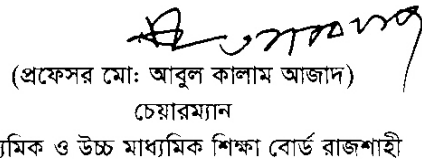 (প্রফেসর মো: আবুল কালাম আজাদ)
চেয়ারম্যান
ও উচ্চ মাধ্যমিক শিক্ষা বোর্ড রাজশাহী